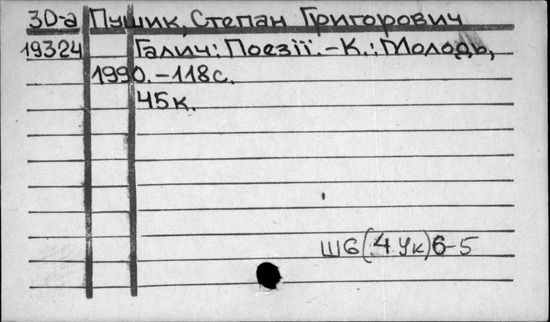 30-а Пушик, Степан Григорович
19324 Галич: Поезії. - К.: Молодь,
1990. - 118с.
45к.
Ш6(4Ук)6-5